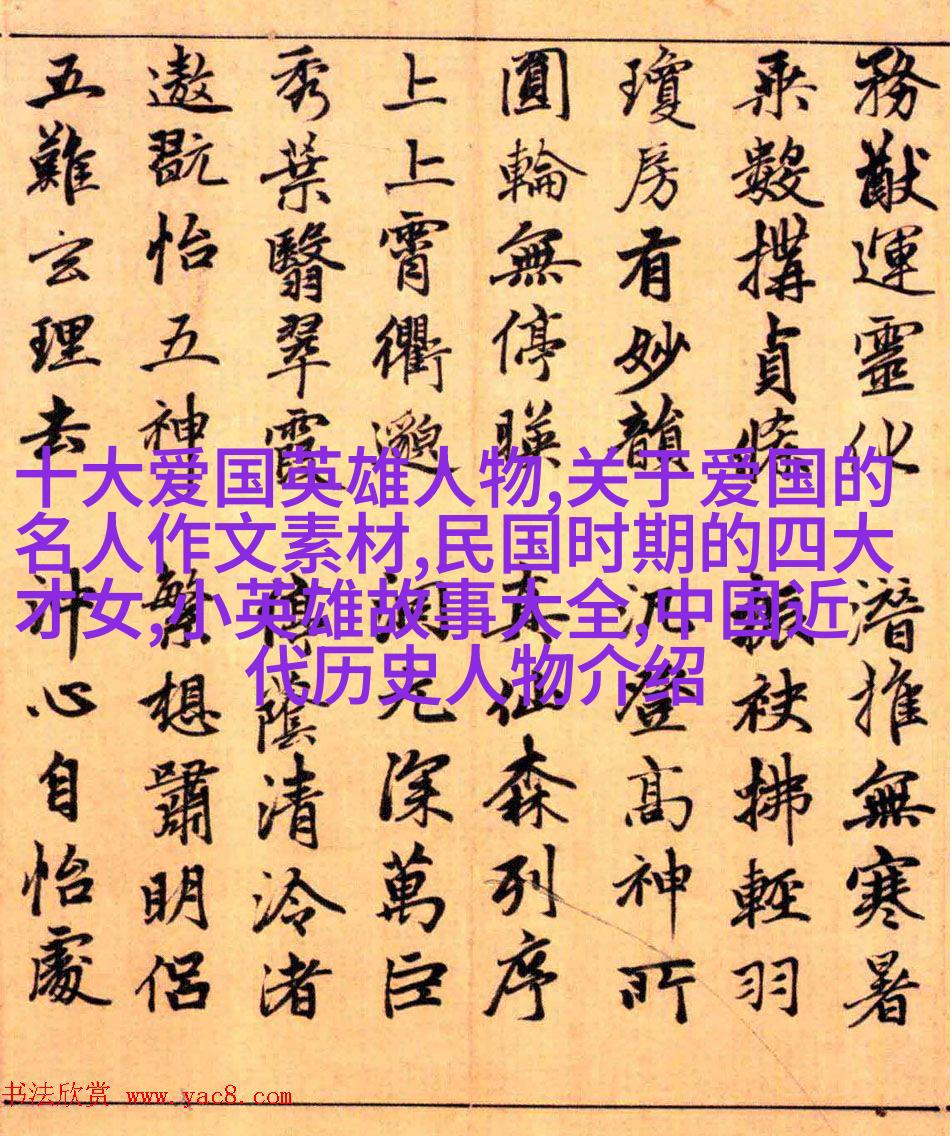 務猷運靈化潛推無寒暑
乘數搆貞條振袂拂輕羽
瓊房有妙韻汎登高神所
圓輪無停暎真仙森列序
上上霄衢邈洞元深萬巨
秀葉翳翠霞停蔭清泠渚
遨翫怡五神繁想嘯明侶
五難玄理去沖心自怡處
十大爱国英雄人物,关于爱国的
名人作文素材,民国时期的四大
才女,小英雄故事大全,中国近
代历史人物介绍
书法欣赏 www.yac8.com